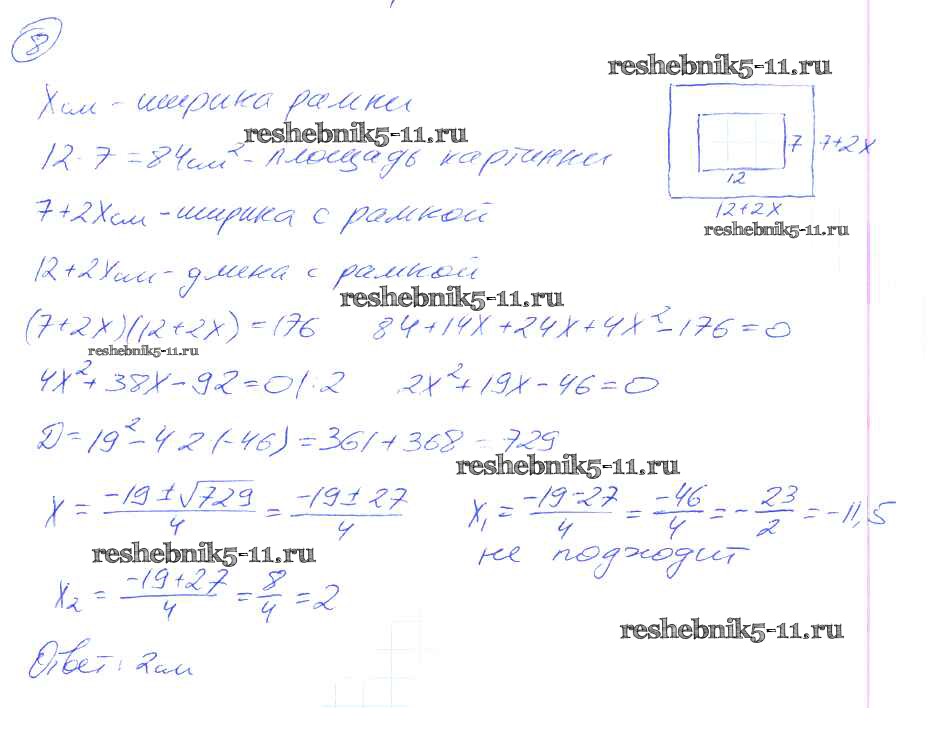 8
reshebnik5-11.ru
Xсм - ширина рамки
reshebnik5-11.ru
12·7=84см² - площадь картинки
7 7+2X
12
7+2Xсм - ширина с рамкой
12+2X
reshebnik5-11.ru
12+2Xсм - длина с рамкой
reshebnik5-11.ru
(7+2X)(12+2X)=176 84+14X+24X+4X²-176=0
reshebnik5-11.ru
4X²+38X-92=0 |·2 2X²+19X-46=0
D=19²-4·2(-46)=361+368=729
reshebnik5-11.ru
X = (-19±√729)/4 = (-19±27)/4 X₁ = (-19-27)/4 = -46/4 = -23/2 = -11,5
reshebnik5-11.ru не подходит
X₂ = (-19+27)/4 = 8/4 = 2
reshebnik5-11.ru
Ответ: 2см